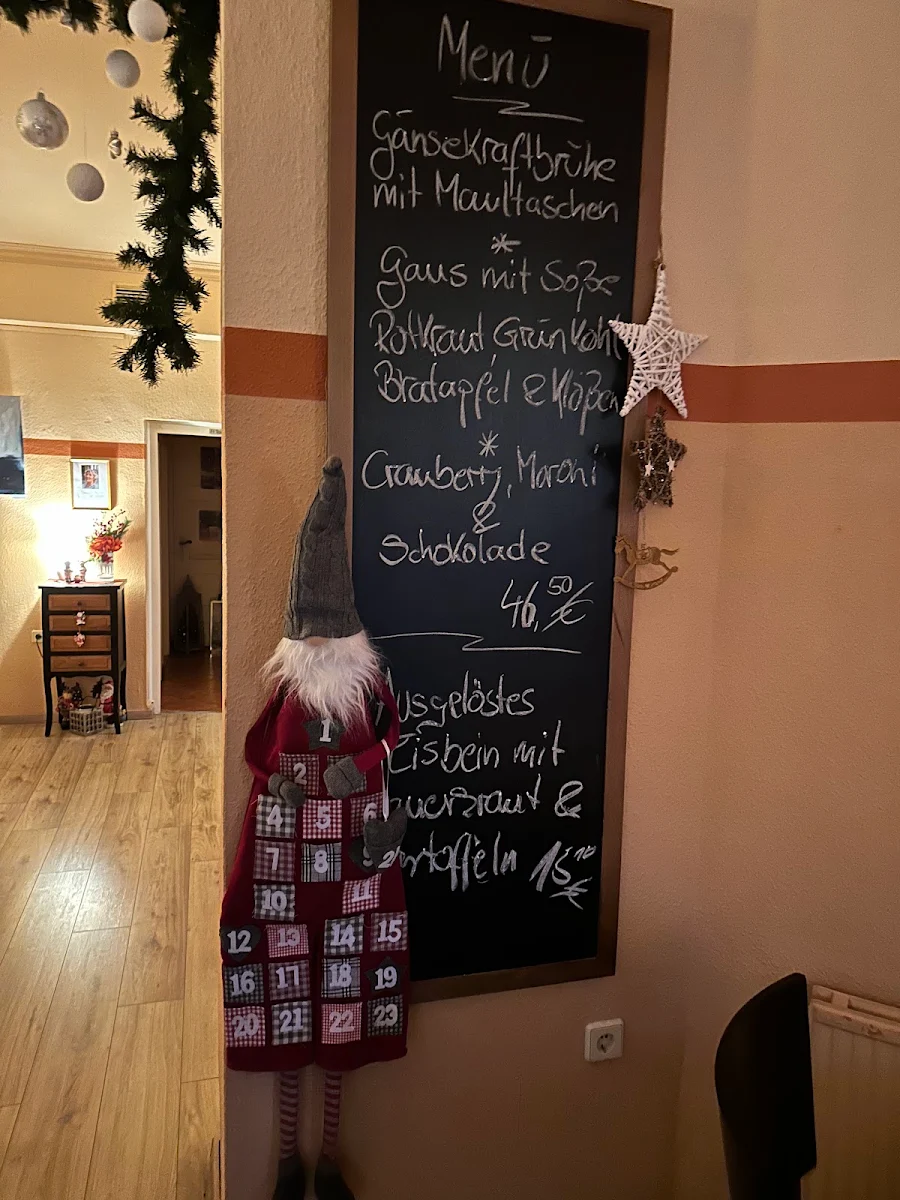 Menü
Gänsekraftbrühe
mit Maultaschen
*
Gans mit Soße
Rotkraut, Grünkohl
Bratapfel & Klößen
*
Cranberry, Maroni
&
Schokolade
46,50 €
usgelöstes
Eisbein mit
auerkraut &
rtoffeln
1
2
4 5 6
7 8
10 11
12 13 14 15
16 17 18 19
20 21 22 23